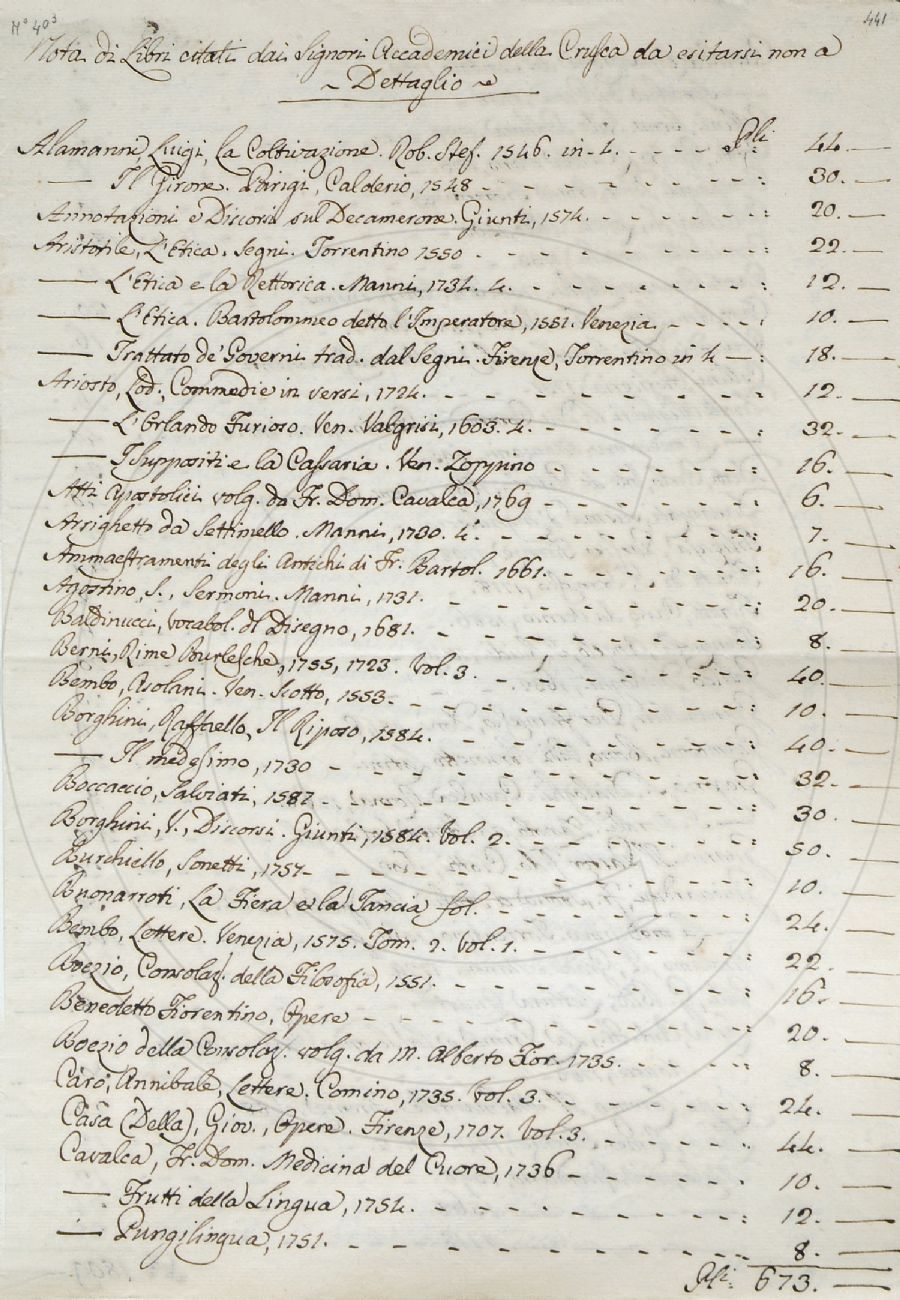 N° 403
441
Nota di Libri citati dai Signori Accademici della Crusca da esitarsi non a
~ Dettaglio ~
Alamanni, Luigi, la Coltivazione. Rob. Stef. 1546. in 4. - - - - Pli 44. —
— Il Girone. Parigi, Calderio, 1548 - - - - - - - : 30. —
Annotazioni e Discorsi sul Decamerone. Giunti, 1574. - - - - - : 20. —
Aristotile, L'Etica. Segni. Torrentino 1550 - - - - - - - - : 22. —
— L'Etica e la Rettorica. Manni, 1734. 4. - - - - - - - : 12. —
— L'Etica. Bartolommeo detto l'Imperatore, 1551. Venezia - - - - : 10. —
— Trattato de' Governi trad. dal Segni. Firenze, Torrentino in 4 — : 18. —
Ariosto, Lod., Commedie in versi, 1724. - - - - - - - - : 12. —
— L'Orlando Furioso. Ven. Valgrisi, 1603. 4. - - - - - - - : 32. —
— I Suppositi e la Cassaria. Ven. Zoppino - - - - - - - : 16. —
Atti Apostolici volg. da Fr. Dom. Cavalca, 1769 - - - - - - - : 6. —
Arrighetto da Settimello. Manni, 1730. 4. - - - - - - - - : 7. —
Ammaestramenti degli Antichi di Fr. Bartol. 1661. - - - - - - : 16. —
Agostino, S., Sermoni. Manni, 1731. - - - - - - - - : 20. —
Baldinucci, vocabol. del Disegno, 1681. - - - - - - - - : 8. —
Berni, Rime Burlesche, 1755, 1723. Vol. 3. - - - - - - - : 40. —
Bembo, Asolani. Ven. Scotto, 1553. - - - - - - - - - : 10. —
Borghini, Raffaello, Il Riposo, 1584. - - - - - - - - : 40. —
— Il medesimo, 1730 - - - - - - - - - - : 32. —
Boccaccio, Salviati, 1587 - - - - - - - - - - : 30. —
Borghini, V., Discorsi. Giunti, 1584. Vol. 2. - - - - - - - : 50. —
Burchiello, Sonetti, 1757 - - - - - - - - - - : 10. —
Buonarroti, La Fiera e la Tancia fol. - - - - - - - - : 24. —
Bembo, Lettere. Venezia, 1575. Tom. 2. Vol. 1. - - - - - - : 22. —
Boezio, Consolaz. della Filosofia, 1551. - - - - - - - - : 16. —
Benedetto Fiorentino, Opere - - - - - - - - - - : 20. —
Boezio della Consolaz. volg. da M. Alberto Fior. 1735. - - - - : 8. —
Caro, Annibale, Lettere. Comino, 1735. Vol. 3. - - - - - - : 24. —
Casa (Della), Giov., Opere. Firenze, 1707. Vol. 3. - - - - - : 44. —
Cavalca, Fr. Dom. Medicina del Cuore, 1736 - - - - - - : 10. —
— Frutti della Lingua, 1754. - - - - - - - - - : 12. —
— Pungilingua, 1751. - - - - - - - - - - 8. —
Pli: 673. —